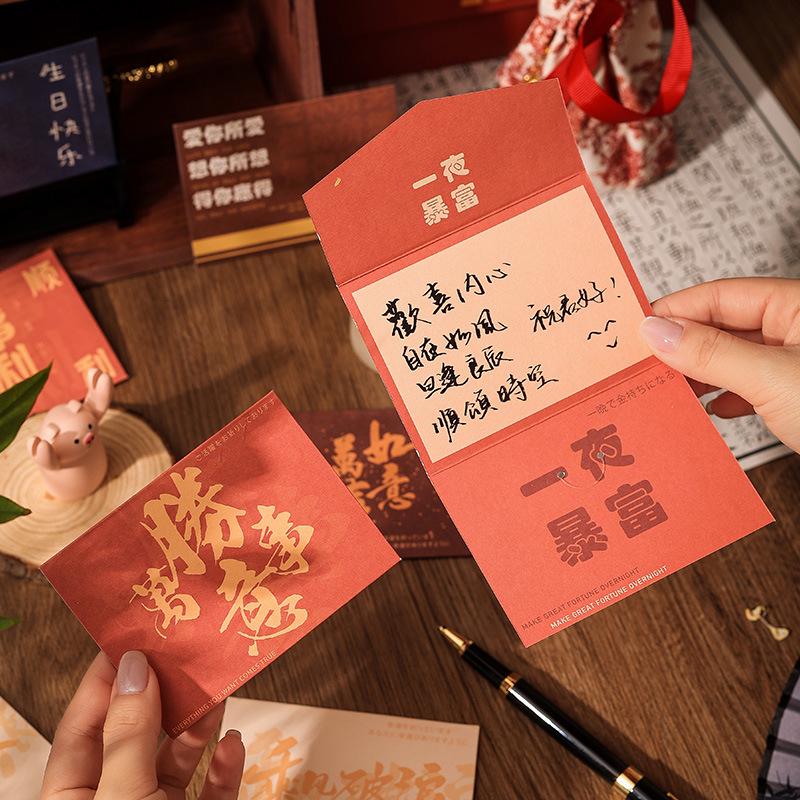 生日快乐
愛你所愛
想你所想
得你應得
順
利
一夜
暴富
歡喜内心
自在如風
旦逢良辰
順頌時宜
祝君好!
一晩で金持ちになる
一夜
暴富
MAKE GREAT FORTUNE OVERNIGHT
MAKE GREAT FORTUNE OVERNIGHT
如意
萬
ご活躍をお祈りしております
萬事勝意
EVERYTHING YOU WANT COMES TRUE